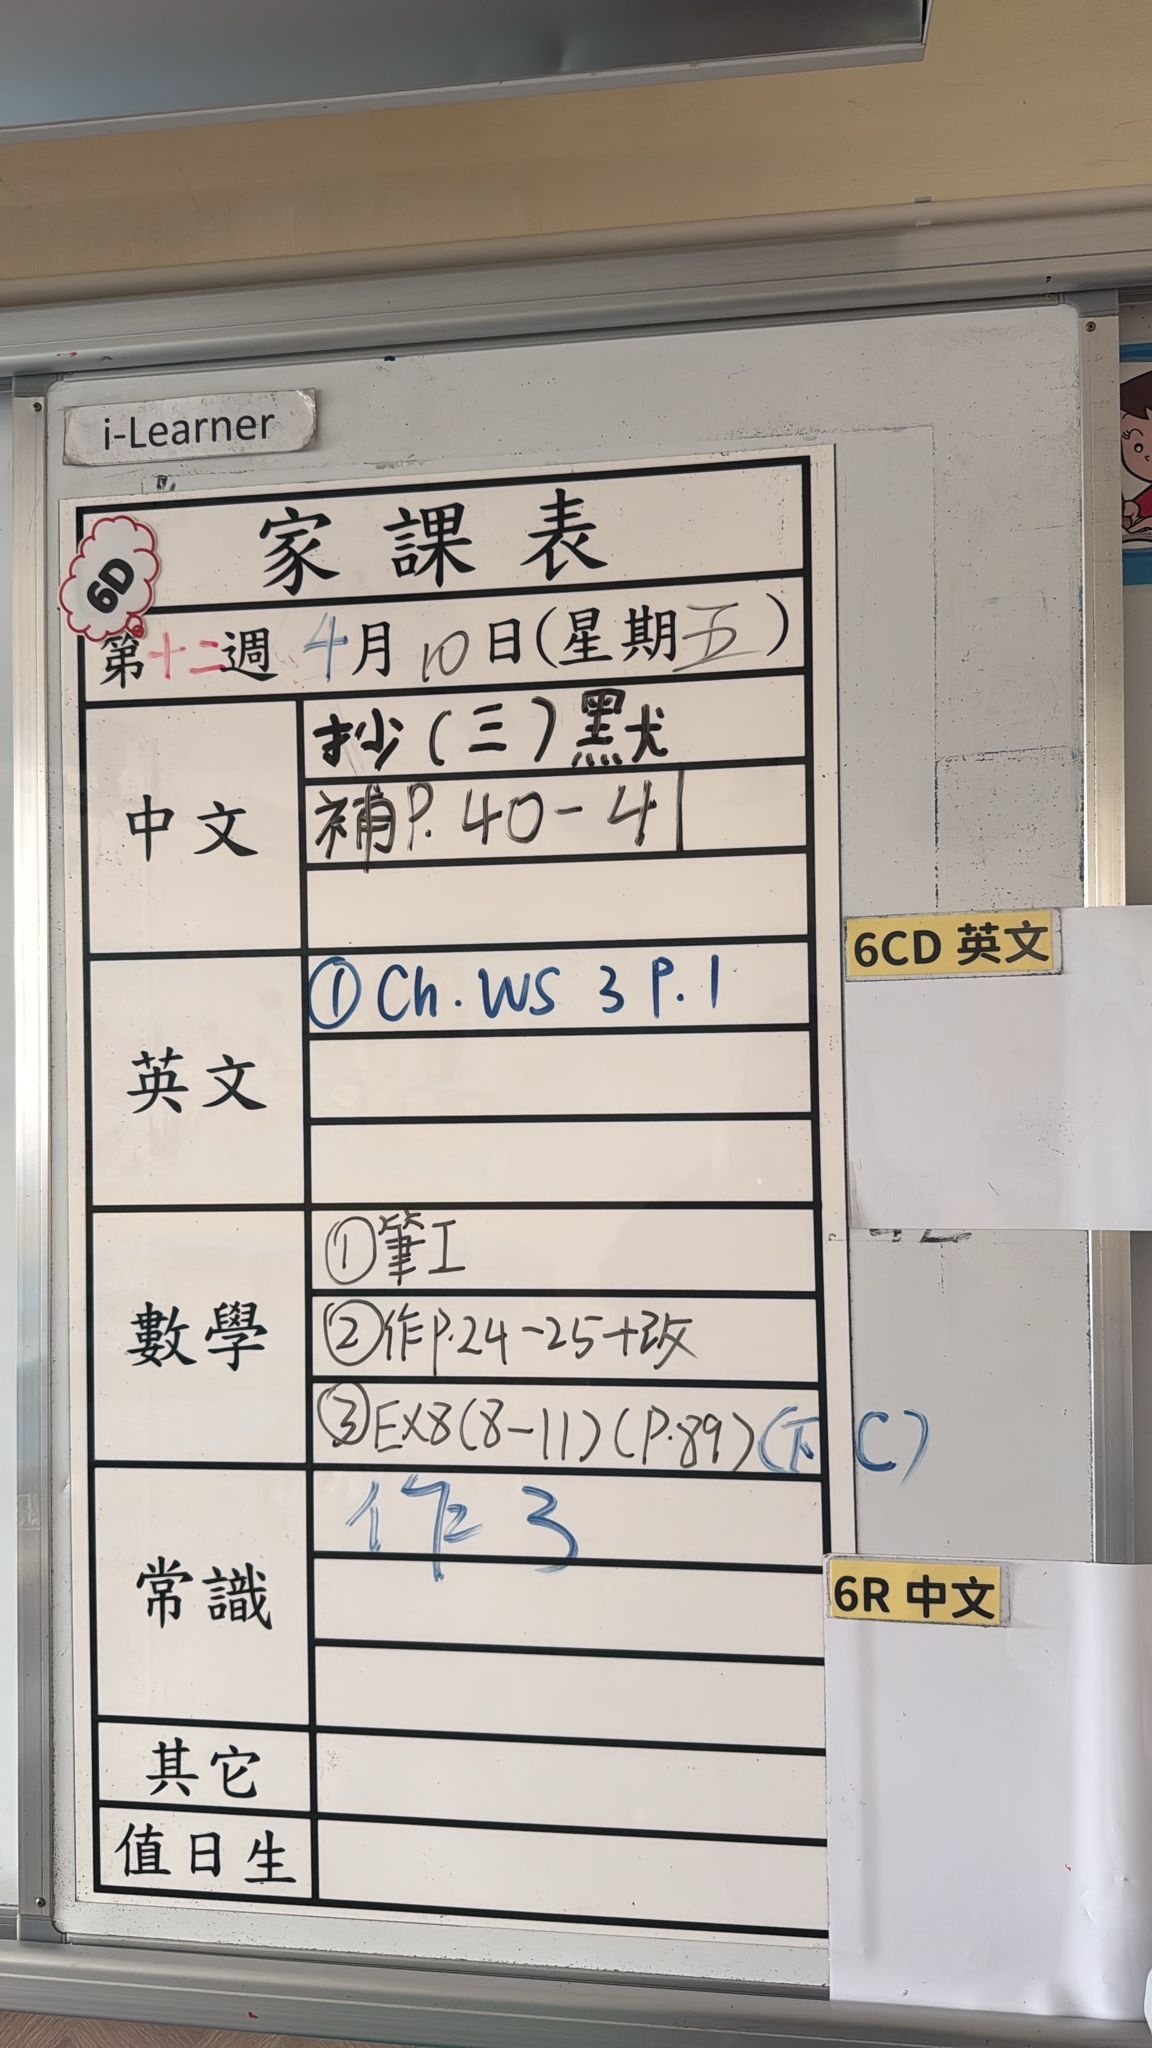 i-Learner
家課表
6D
第十二週 4月10日(星期五)
中文
抄(三)默
補P.40-41
英文
①Ch.WS 3 P.1
數學
①筆工
②作P.24-25+改
③EX8(8-11)(P.89)(下C)
常識
作3
其它
值日生
6CD 英文
6R 中文